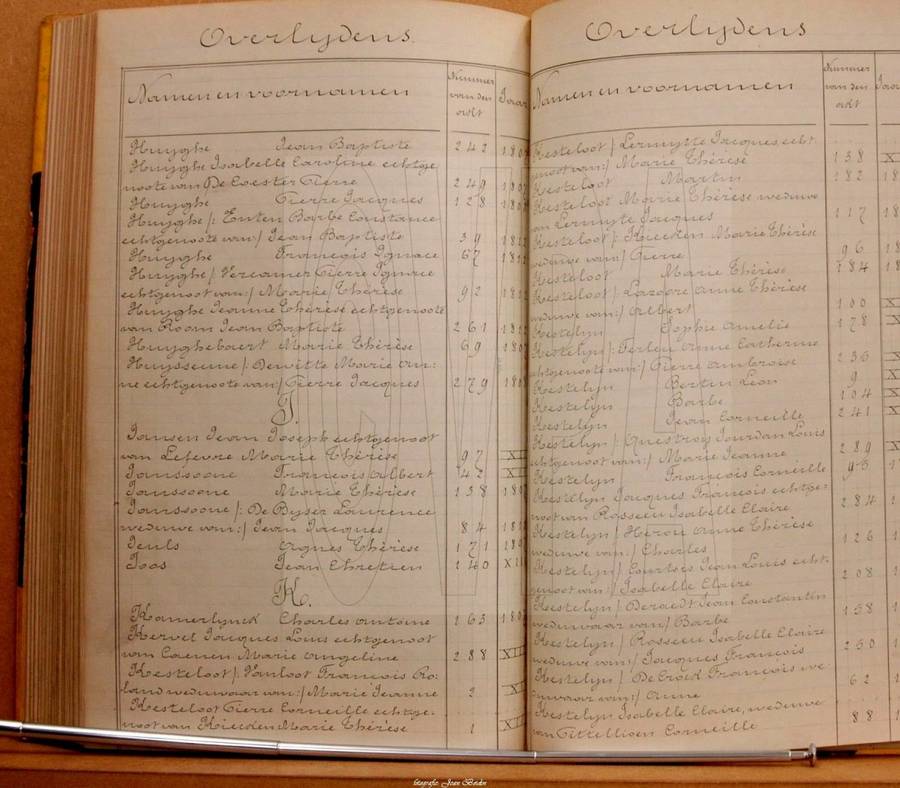 Overlydens.
Namen en voornamen Nummer van den akt Jaar
Huyghe Jean Baptiste 242
Huyghe Isabelle Caroline echtge
noote van De Coester Pierre 249
Huyghe Pierre Jacques 128
Huyghe /: Enten Barbe Constance
echtgenoote van:/ Jean Baptiste 39
Huyghe François Ignace 67
Huyghe /: Vercamer Pierre Ignace
echtgenoot van:/ Marie Thérèse 92
Huyghe Jeanne Thérèse echtgenoote
van Room Jean Baptiste 261
Huyghebaert Marie Thérèse 69
Huysseune /: Dewitte Marie An:
ne echtgenoote van:/ Pierre Jacques 279
J.
Jansen Jean Joseph echtgenoot
van Lefevre Marie Thérèse 97
Janssoone François Albert 42
Janssoone Marie Thérèse 138
Janssoone /: De Ryser Laurence
weduwe van:/ Jean Jacques 84
Jeuls Agnes Thérèse 171
Joos Jean Chretien 140
K.
Kamerlynck Charles Antoine 163
Kervel Jacques Louis echtgenoot
van Caenen Marie Angeline 288
Kesteloot /: Vanloot François Ro:
land weduwaar van:/ Marie Jeanne 2
Kesteloot Pierre Corneille echtge.
noot van Kiecken Marie Thérèse 1
Overlydens
Namen en voornamen Nummer van den akt
Kesteloot /: Lermytte Jacques echt.
genoot van:/ Marie Thérèse 138
Kesteloot Martin 182
Kesteloot Marie Thérèse weduwe
van Lermyte Jacques 117
Kesteloot /: Kiecken Marie Thérèse
weduwe van:/ Pierre 96
Kesteloot Marie Thérèse 184
Kesteloot /: Lazoore Anne Thérèse
weduwe van:/ Albert 100
Kestelyn Sophie Amelie 178
Kestelyn /: Ferlen Anne Catherine
echtgenoote van:/ Pierre Ambroise 236
Kestelyn Bertin Leon 9
Kestelyn Barbe 104
Kestelyn Jean Corneille 241
Kestelyn /: Questroy Jourdan Louis
echtgenoot van:/ Marie Jeanne 289
Kestelyn François Corneille 95
Kestelyn Jacques François echtge:
noot van Rosseeu Isabelle Claire 284
Kestelyn /: Herou Anne Thérèse
weduwe van:/ Charles 126
Kestelyn /: Courtois Jean Louis echt.
genoot van:/ Isabelle Claire 208
Kestelyn /: Deraedt Jean Constantin
weduwaar van:/ Barbe 138
Kestelyn /: Rosseeu Isabelle Claire
weduwe van:/ Jacques François 250
Kestelyn /: De Crock François we:
duwaar van:/ Anne 62
Kestelyn Isabelle Claire, weduwe
van Tittellioen Corneille 88
fotografie: Jean Bovdin